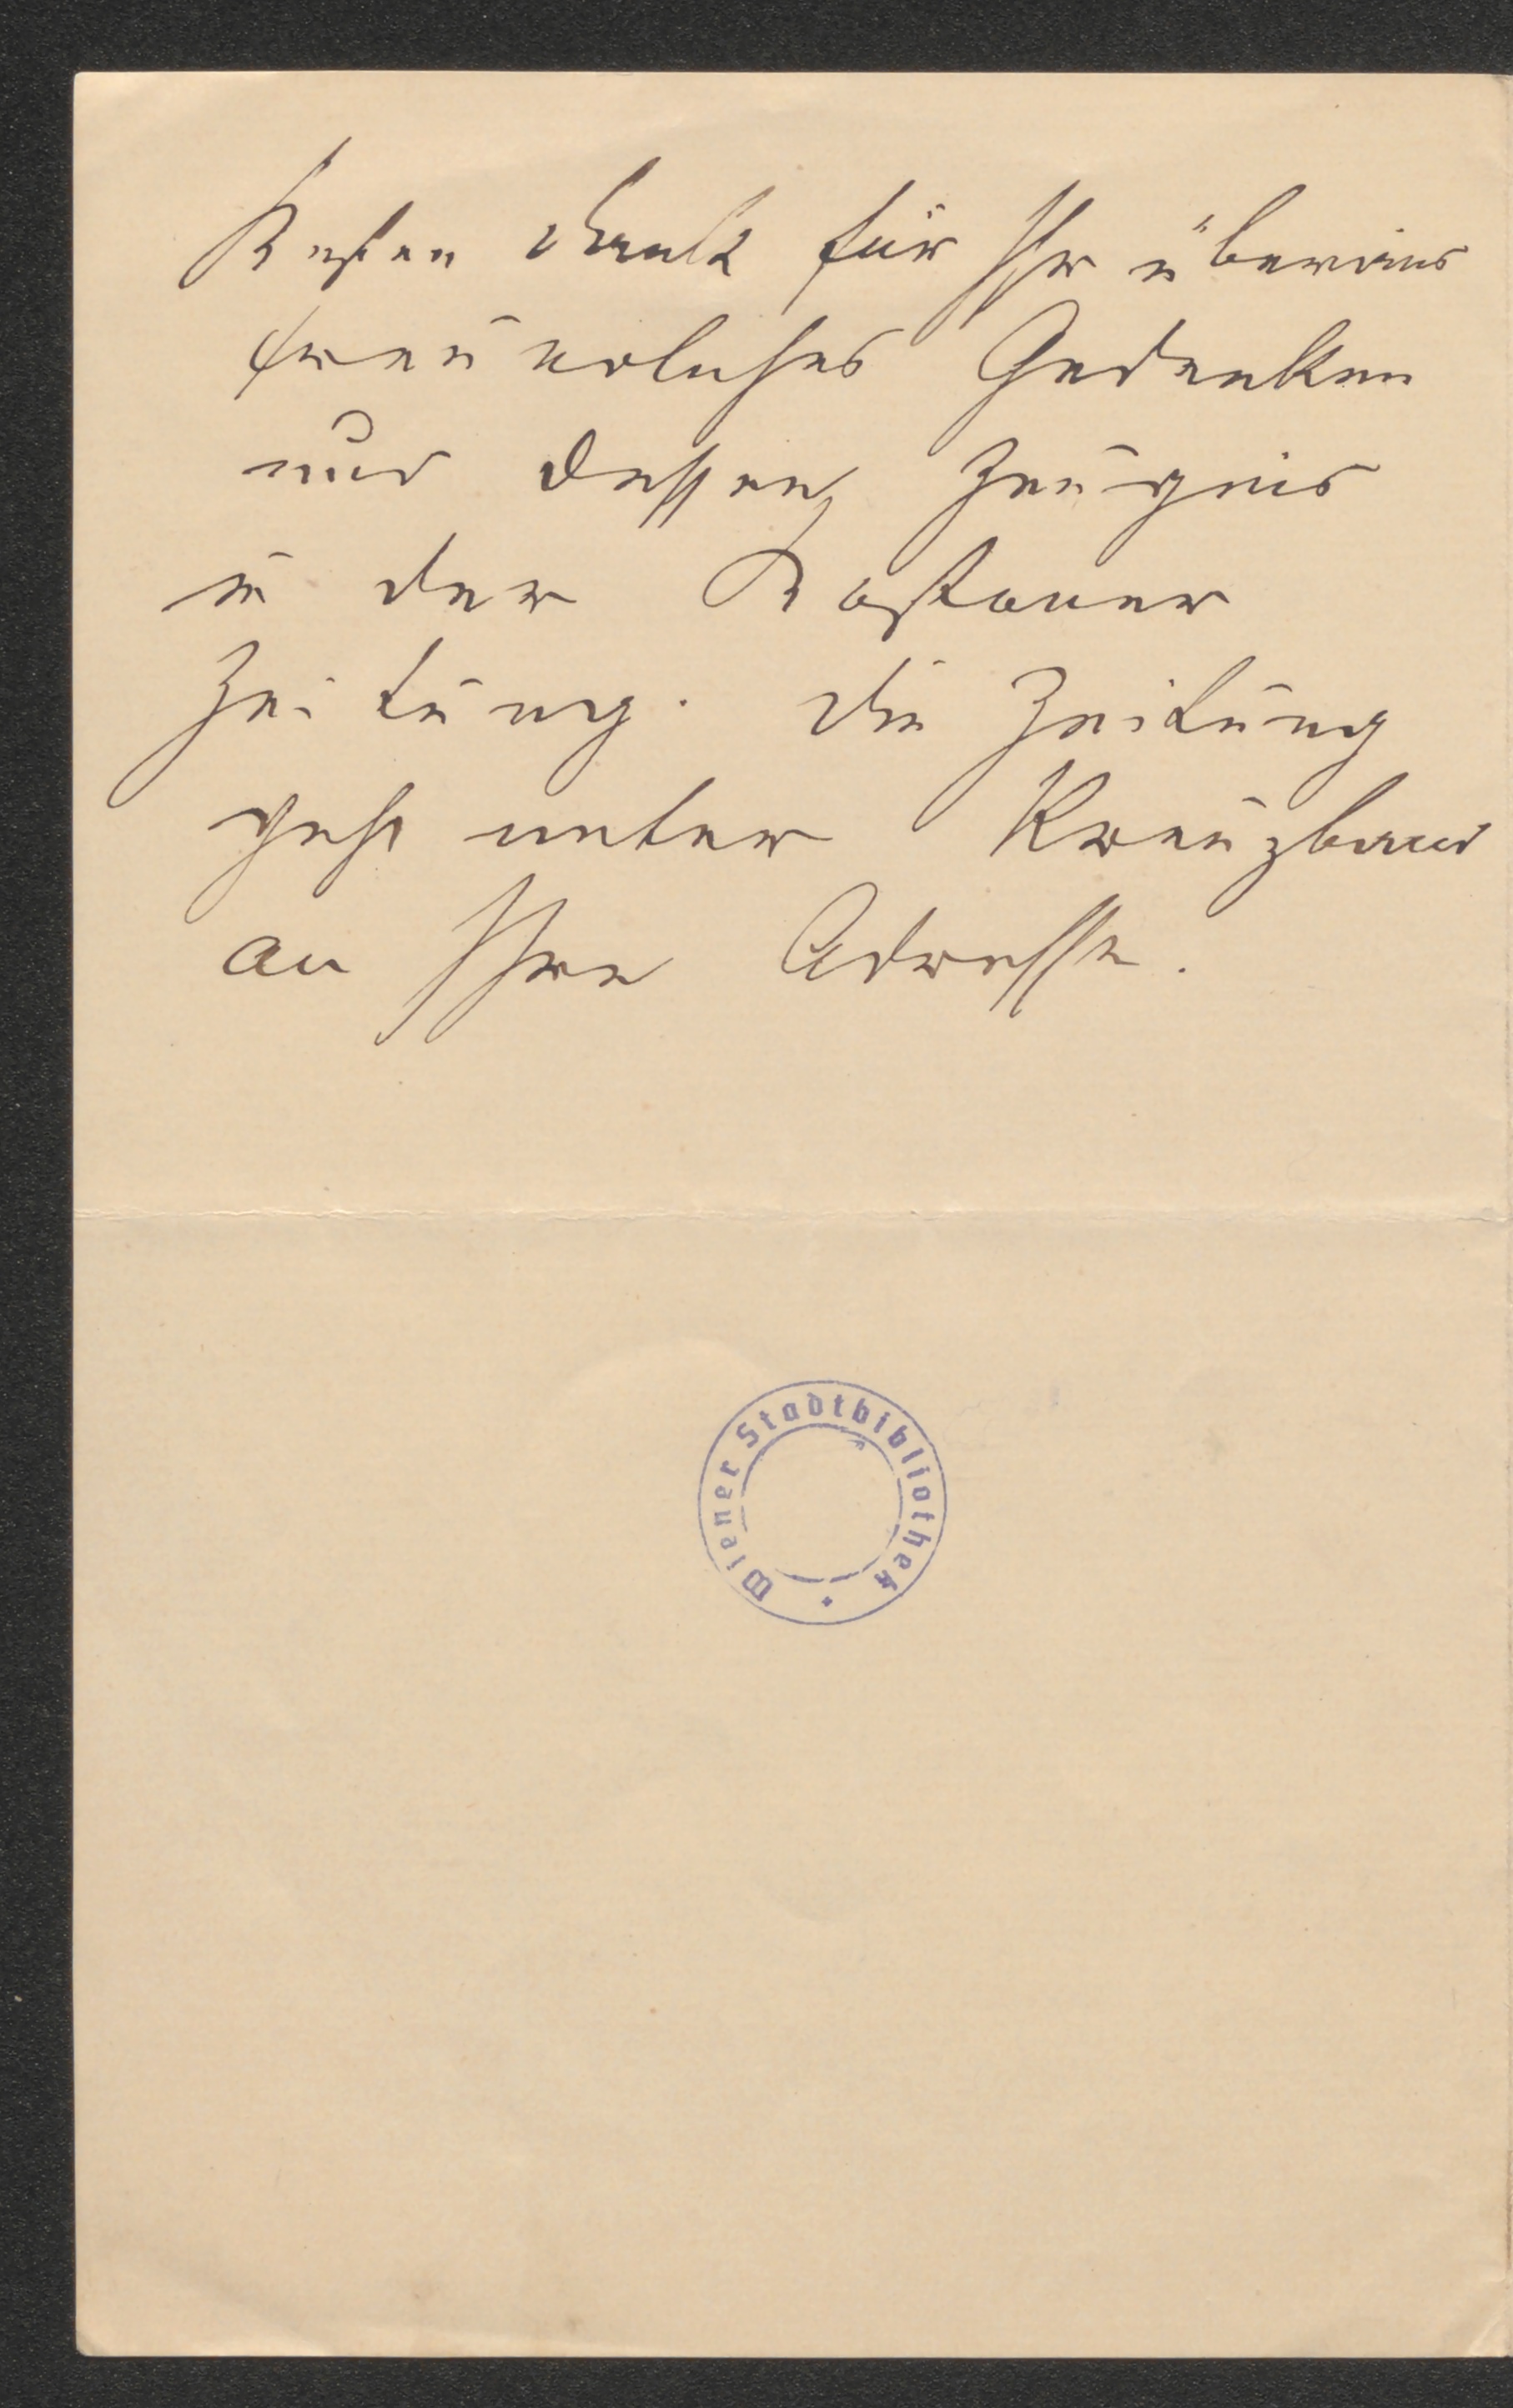 Besten Dank für Ihr überaus
freundliches Gedenken
und dessen Zeugnis
in der
Zeitung. Die Zeitung
geht unter Kreuzband
an Ihre Adresse.
Wiener Stadtbibliothek